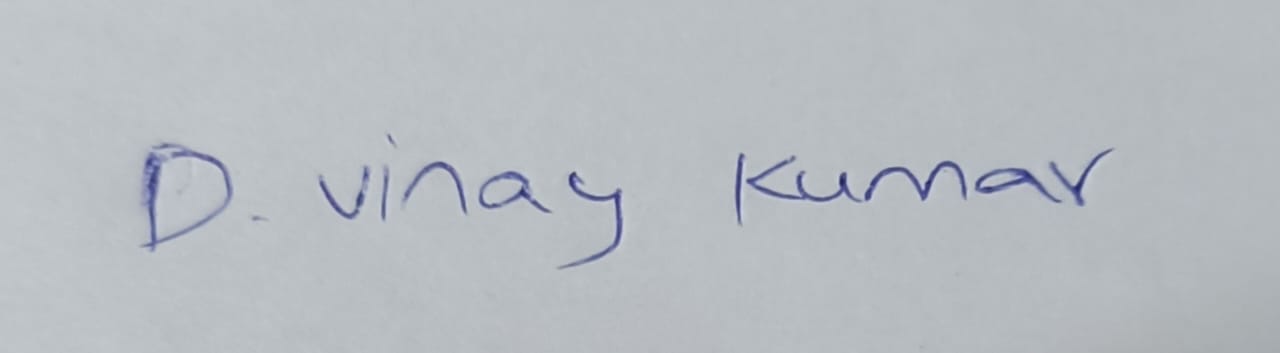 D. vinay Kumar